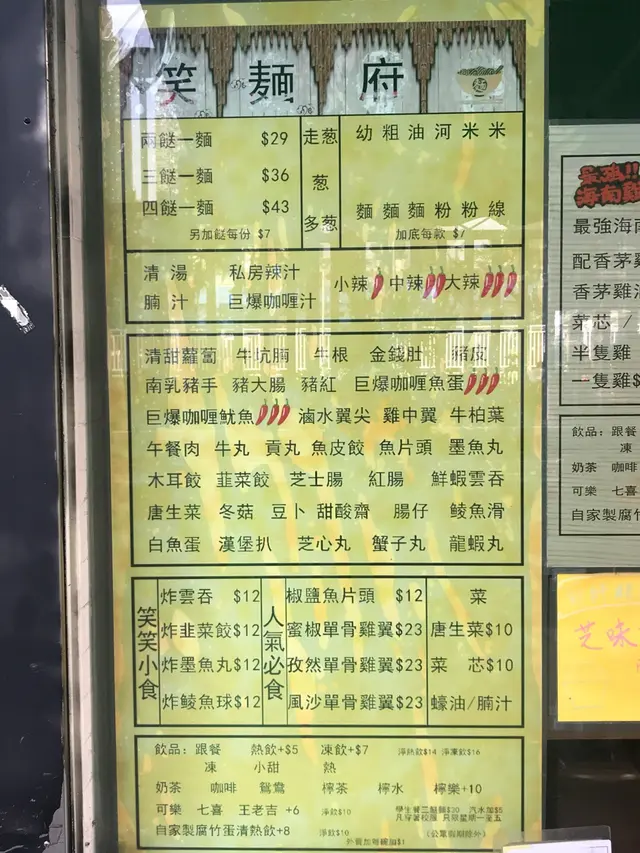 笑麵府
兩餸一麵 $29
三餸一麵 $36
四餸一麵 $43
另加餸每份 $7
走葱
葱
多葱
幼 粗 油 河 米 米
麵 麵 麵 粉 粉 線
加底每款 $7
清湯 私房辣汁
腩汁 巨爆咖喱汁
小辣 中辣 大辣
清甜蘿蔔 牛坑腩 牛根 金錢肚 豬皮
南乳豬手 豬大腸 豬紅 巨爆咖喱魚蛋
巨爆咖喱魷魚 滷水翼尖 雞中翼 牛柏葉
午餐肉 牛丸 貢丸 魚皮餃 魚片頭 墨魚丸
木耳餃 韮菜餃 芝士腸 紅腸 鮮蝦雲吞
唐生菜 冬菇 豆卜 甜酸齋 腸仔 鲮魚滑
白魚蛋 漢堡扒 芝心丸 蟹子丸 龍蝦丸
笑笑小食
炸雲吞 $12
炸韮菜餃$12
炸墨魚丸$12
炸鲮魚球$12
人氣必食
椒鹽魚片頭 $12
蜜椒單骨雞翼$23
孜然單骨雞翼$23
風沙單骨雞翼$23
菜
唐生菜$10
菜 芯$10
蠔油/腩汁
飲品: 跟餐 熱飲+$5 凍飲+$7 淨熱飲$14 淨凍飲$16
凍 小甜 熱
奶茶 咖啡 鴛鴦 檸茶 檸水 檸樂+10
可樂 七喜 王老吉 +6 淨飲$10
自家製腐竹蛋清熱飲+8 淨飲$10
學生餐三餸麵$30 汽水加$5
凡穿著校服 只限星期一至五
(公眾假期除外)
外賣加每碗加$1
最強!!
海南雞
最強海南
配香茅雞
香茅雞
菜芯 /
半隻雞
一隻雞$
飲品: 跟餐
凍
奶茶 咖啡
可樂 七喜
自家製腐竹
芝味